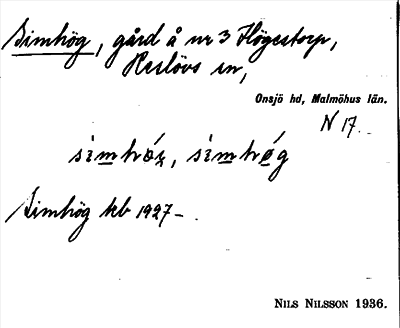 Simhög, gård å nr 3 Högestorp,
Reslövs sn,
Onsjö hd, Malmöhus län.
N 17.
simhøʒ, simhøg
Simhög kb 1927 –.
NILS NILSSON 1936.